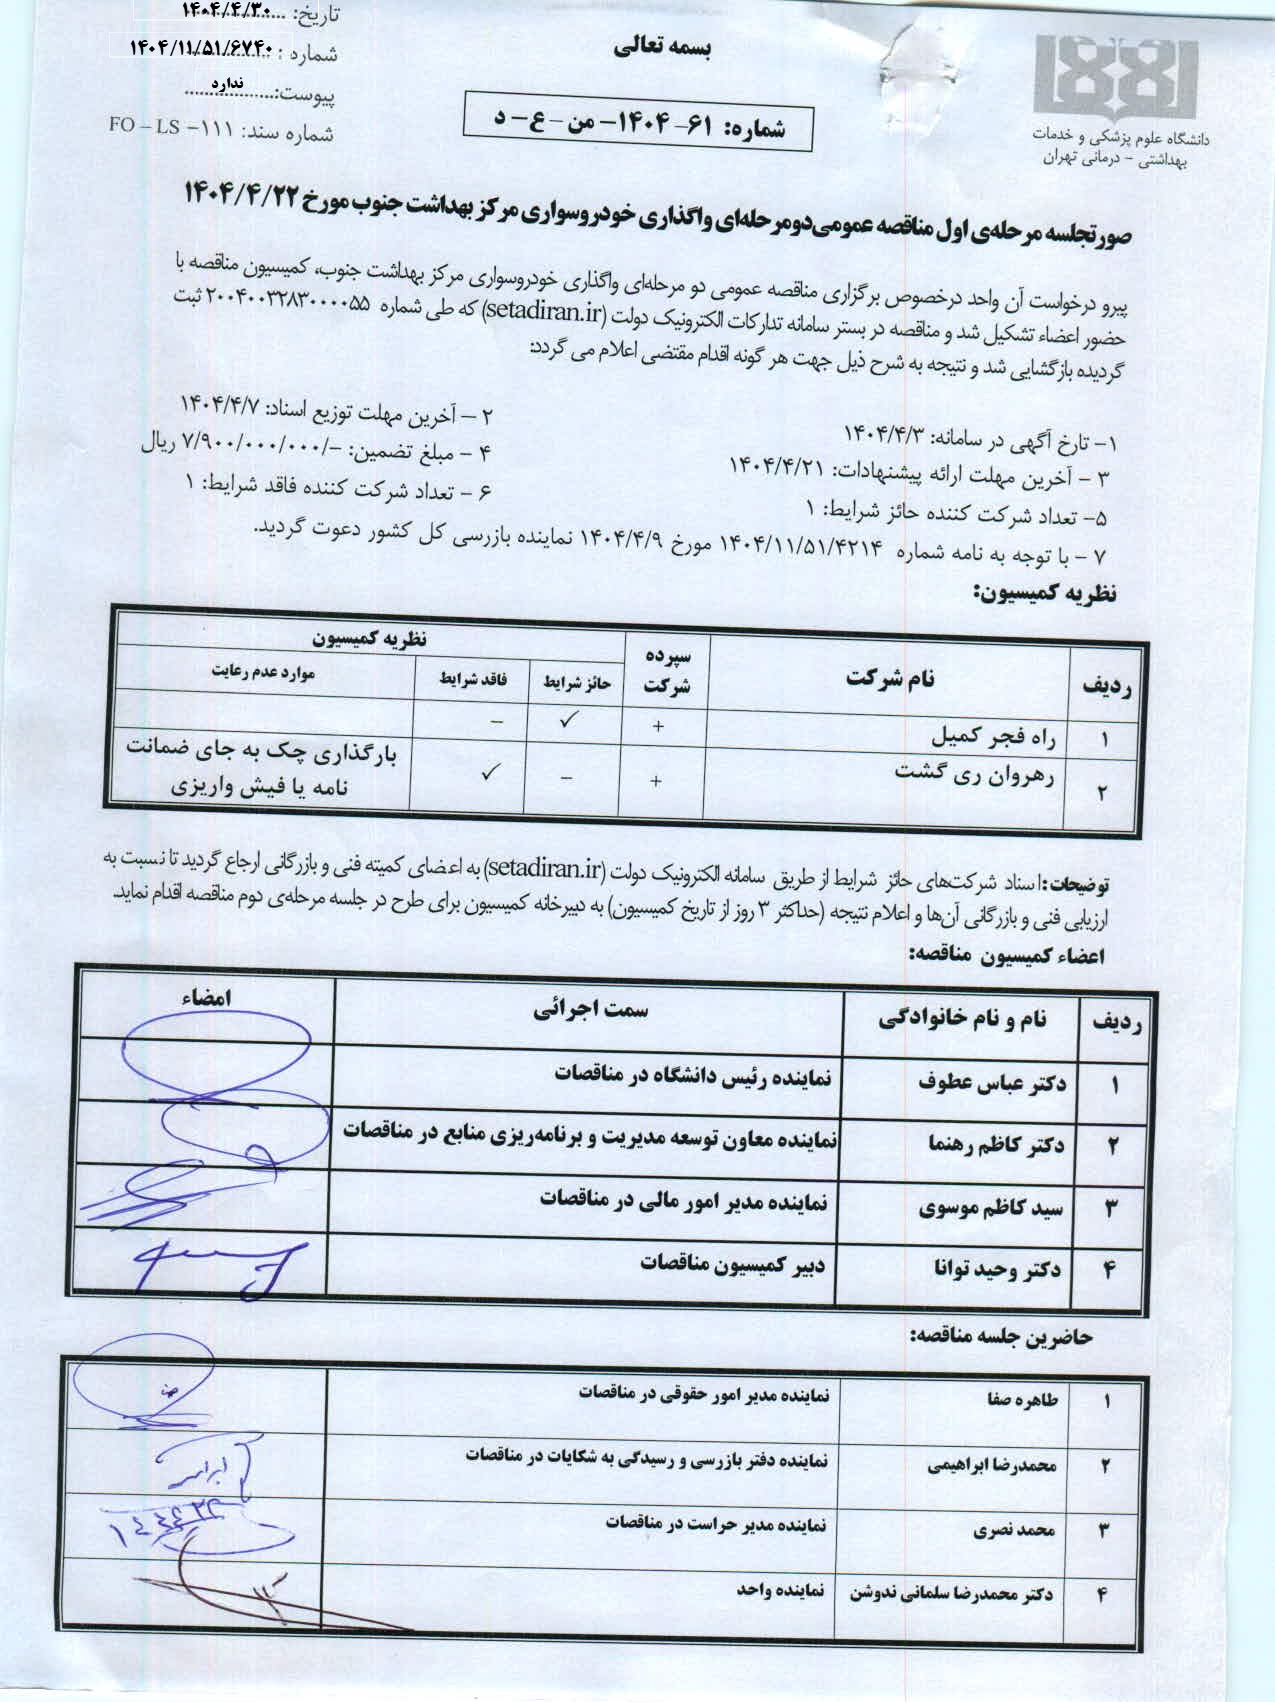 بسمه تعالی
تاریخ: ۱۴۰۴/۴/۳۰
شماره: ۱۴۰۴/۱۱/۵۱/۶۷۴۰
پیوست: ندارد
شماره سند: FO – LS –۱۱۱
دانشگاه علوم پزشکی و خدمات
بهداشتی – درمانی تهران
شماره: ۶۱- ۱۴۰۴- من – ع – د
صورتجلسه مرحله‌ی اول مناقصه عمومی‌دومرحله‌ای واگذاری خودروسواری مرکز بهداشت جنوب مورخ ۱۴۰۴/۴/۲۲
پیرو درخواست آن واحد درخصوص برگزاری مناقصه عمومی دو مرحله‌ای واگذاری خودروسواری مرکز بهداشت جنوب، کمیسیون مناقصه با
حضور اعضاء تشکیل شد و مناقصه در بستر سامانه تدارکات الکترونیک دولت (setadiran.ir) که طی شماره ۲۰۰۴۰۰۳۲۸۳۰۰۰۰۵۵ ثبت
گردیده بازگشایی شد و نتیجه به شرح ذیل جهت هر گونه اقدام مقتضی اعلام می گردد:
۱- تارخ آگهی در سامانه: ۱۴۰۴/۴/۳
۲ – آخرین مهلت توزیع اسناد: ۱۴۰۴/۴/۷
۳ – آخرین مهلت ارائه پیشنهادات: ۱۴۰۴/۴/۲۱
۴ – مبلغ تضمین: -/۷/۹۰۰/۰۰۰/۰۰۰ ریال
۵- تعداد شرکت کننده حائز شرایط: ۱
۶ – تعداد شرکت کننده فاقد شرایط: ۱
۷ – با توجه به نامه شماره ۱۴۰۴/۱۱/۵۱/۴۲۱۴ مورخ ۱۴۰۴/۴/۹ نماینده بازرسی کل کشور دعوت گردید.
نظریه کمیسیون:
ردیف نام شرکت سپرده شرکت نظریه کمیسیون
حائز شرایط فاقد شرایط موارد عدم رعایت
۱ راه فجر کمیل + ✓ –
۲ رهروان ری گشت + – ✓ بارگذاری چک به جای ضمانت
نامه یا فیش واریزی
توضیحات: اسناد شرکت‌های حائز شرایط از طریق سامانه الکترونیک دولت (setadiran.ir) به اعضای کمیته فنی و بازرگانی ارجاع گردید تا نسبت به
ارزیابی فنی و بازرگانی آن‌ها و اعلام نتیجه (حداکثر ۳ روز از تاریخ کمیسیون) به دبیرخانه کمیسیون برای طرح در جلسه مرحله‌ی دوم مناقصه اقدام نماید.
اعضاء کمیسیون مناقصه:
ردیف نام و نام خانوادگی سمت اجرائی امضاء
۱ دکتر عباس عطوف نماینده رئیس دانشگاه در مناقصات
۲ دکتر کاظم رهنما نماینده معاون توسعه مدیریت و برنامه‌ریزی منابع در مناقصات
۳ سید کاظم موسوی نماینده مدیر امور مالی در مناقصات
۴ دکتر وحید توانا دبیر کمیسیون مناقصات
حاضرین جلسه مناقصه:
۱ طاهره صفا نماینده مدیر امور حقوقی در مناقصات
۲ محمدرضا ابراهیمی نماینده دفتر بازرسی و رسیدگی به شکایات در مناقصات
۳ محمد نصری نماینده مدیر حراست در مناقصات
۴ دکتر محمدرضا سلمانی ندوشن نماینده واحد